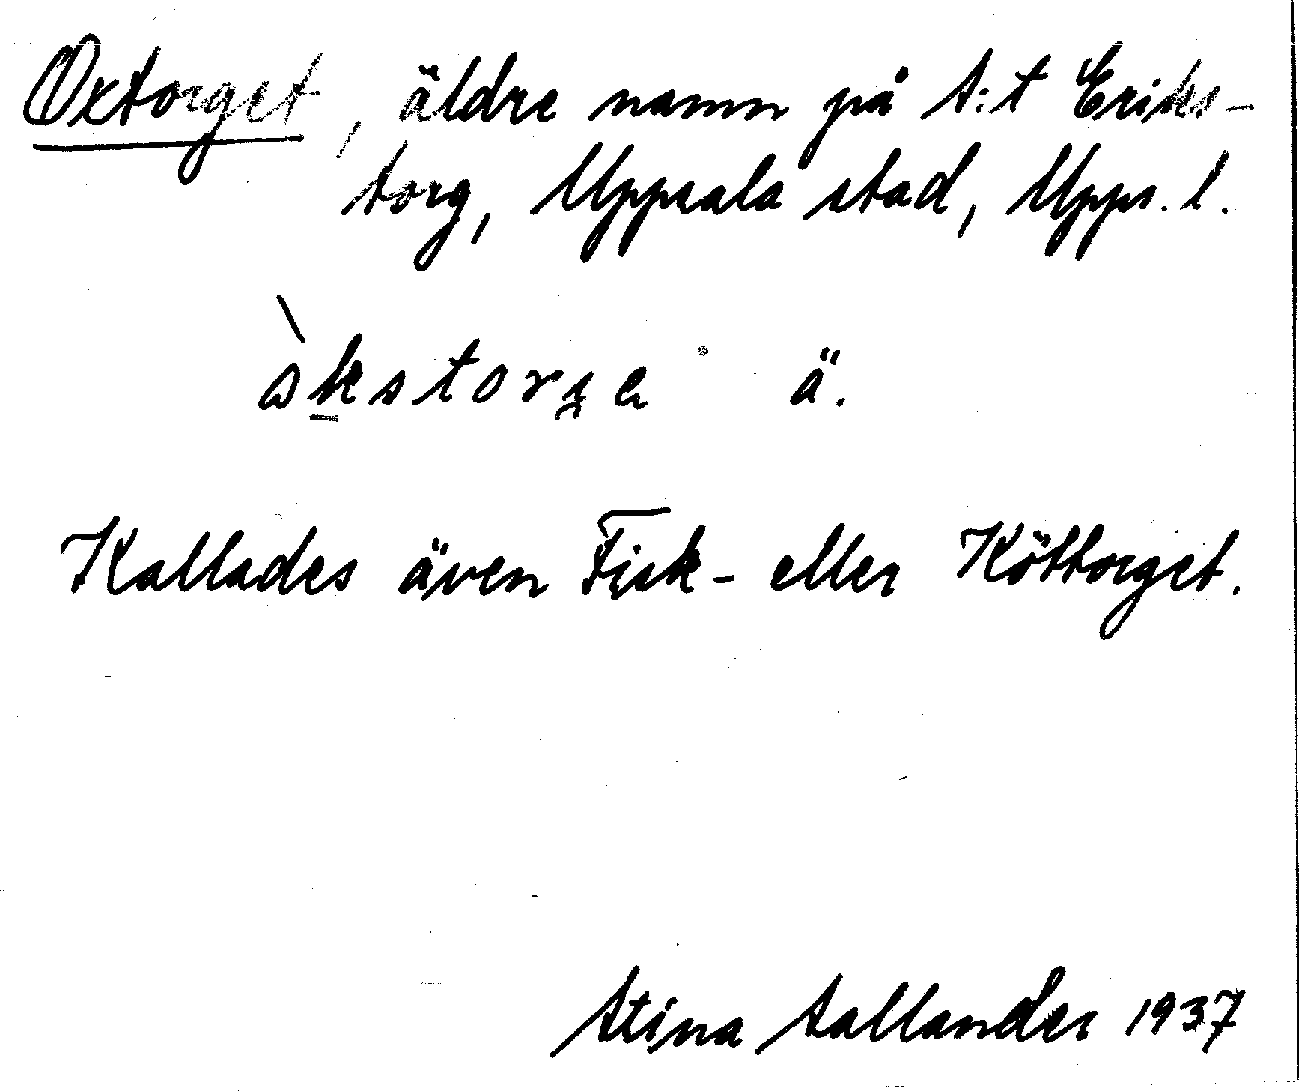 Oxtorget, äldre namn på S:t Eriks-
torg, Uppsala stad, Upps. l.
ä.
Kallades även Fisk- eller Köttorget.
Stina Sallander 1937